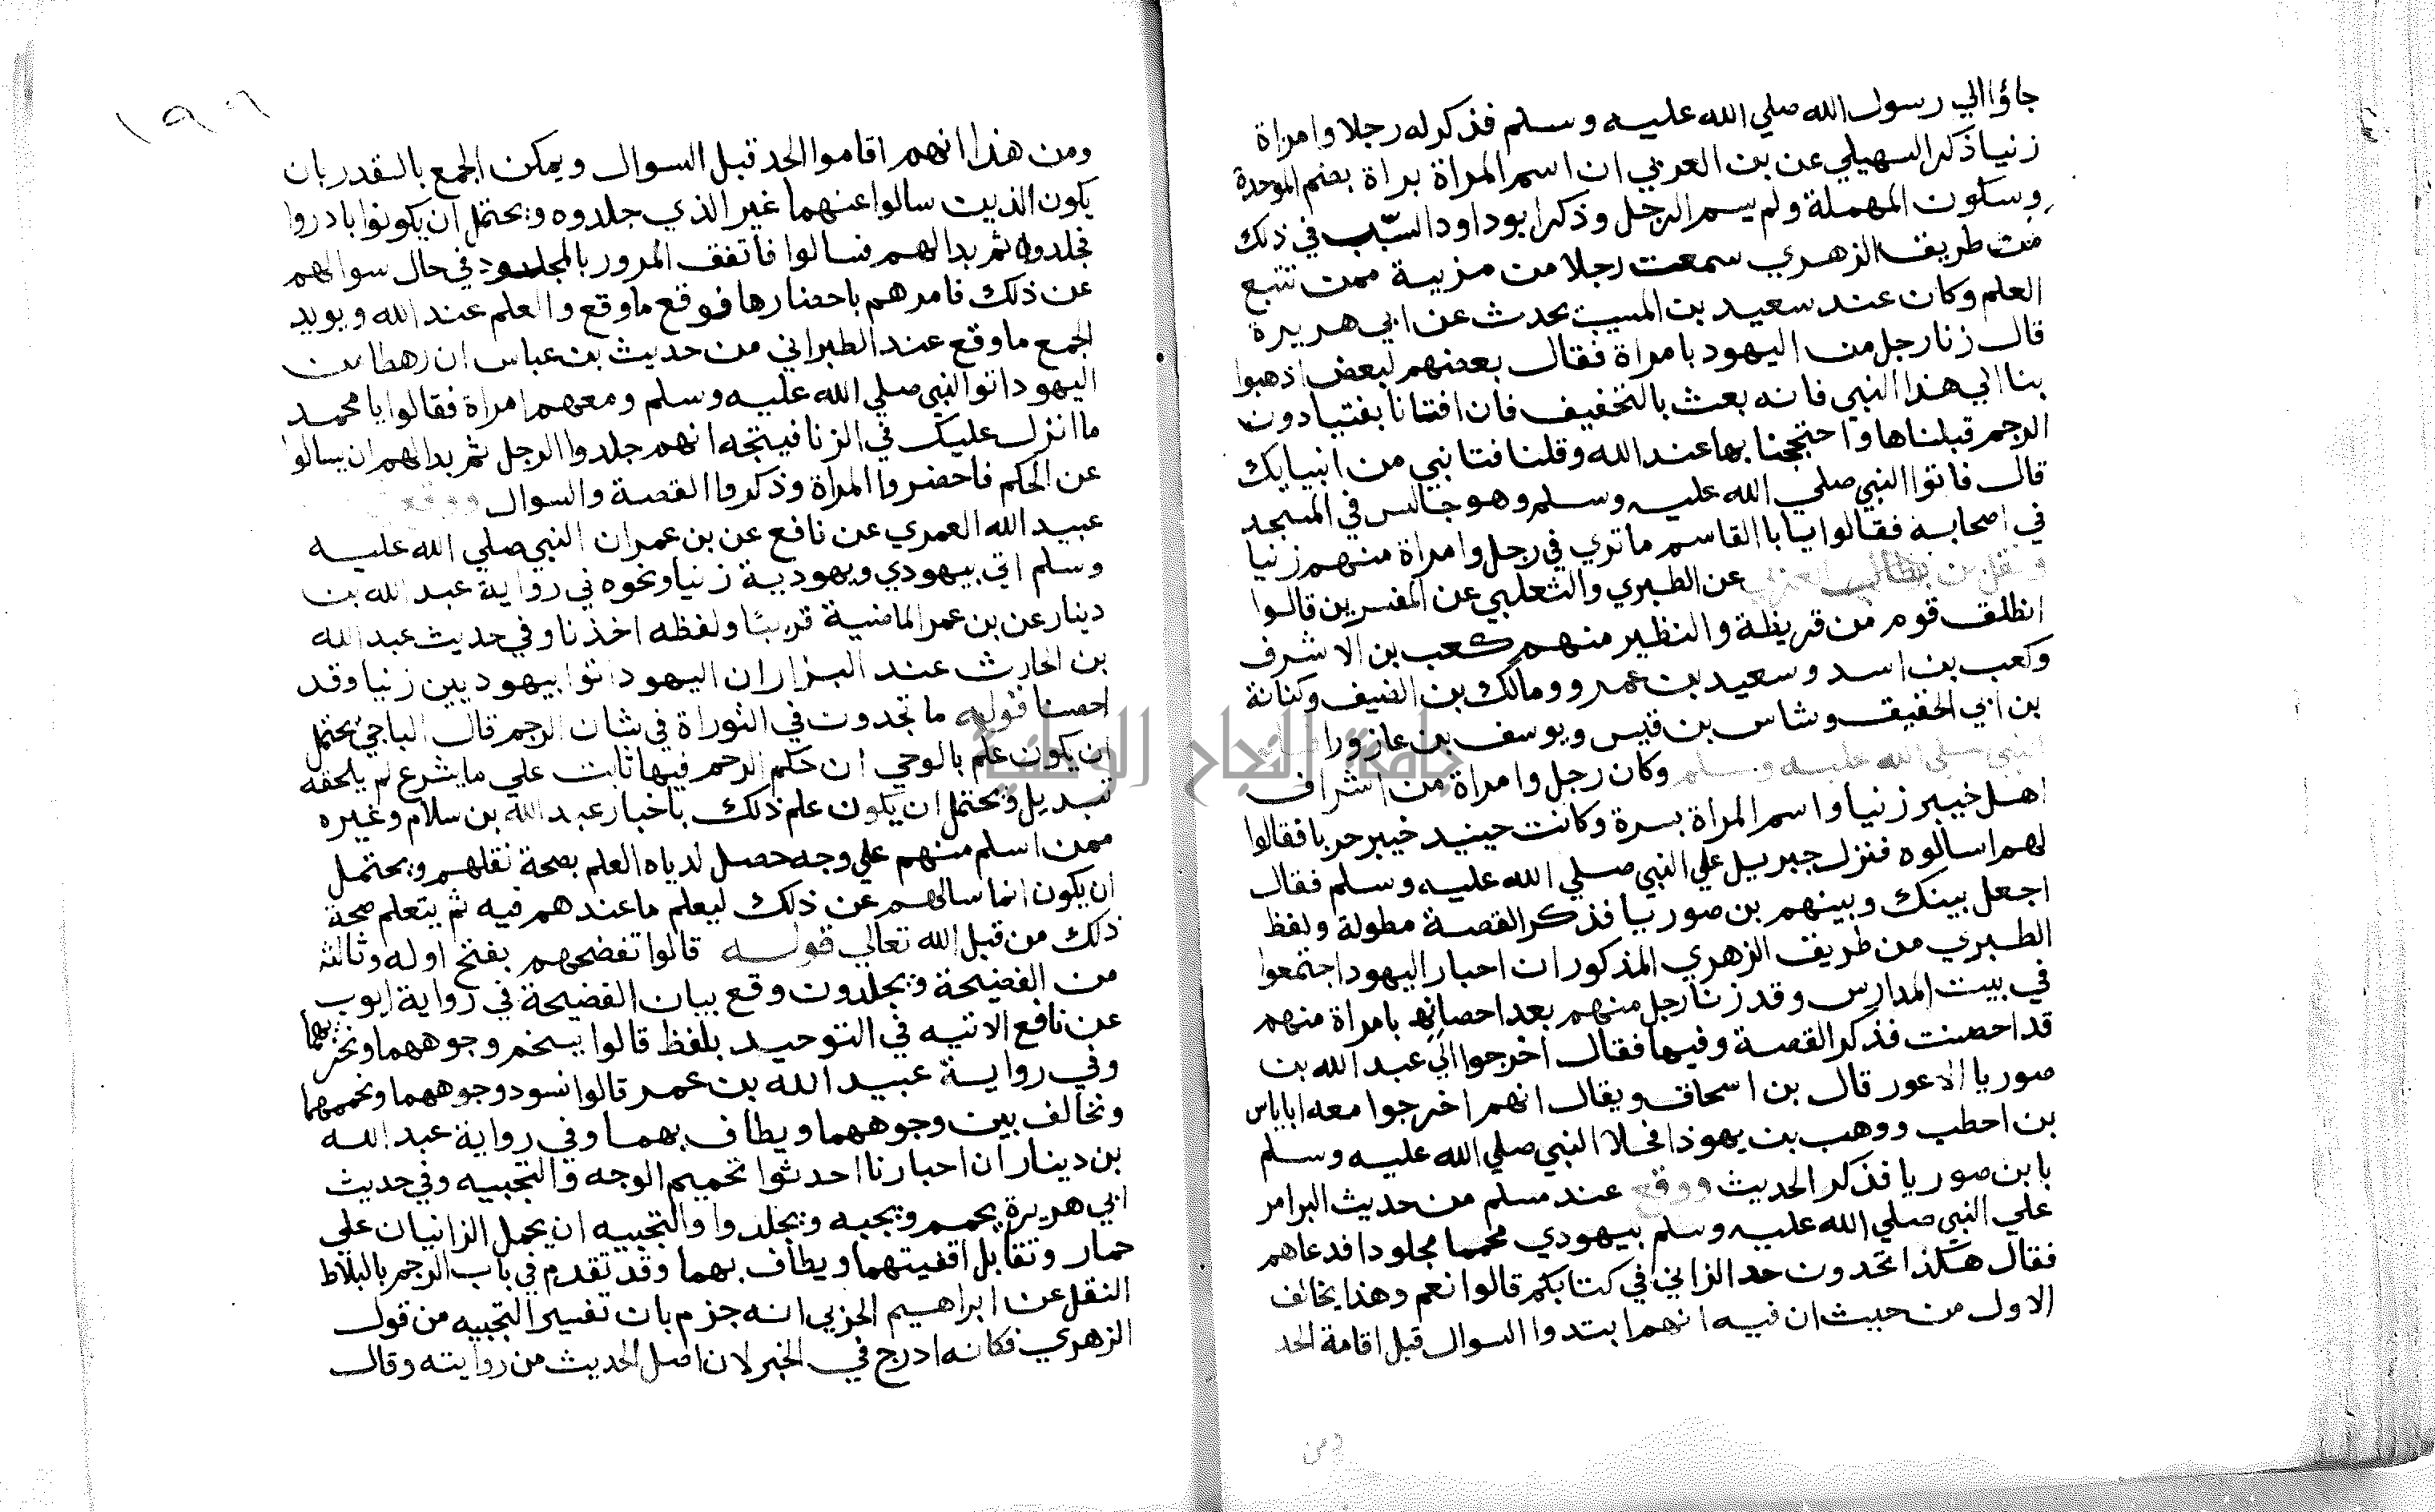 جاؤا الي رسول الله صلي الله عليه وسلم فذكر له رجلا وامراة
زنيا ذكر السهيلي عن بن العربي ان اسم المراة براة بضم الموحدة
وسكون المهملة ولم يسم الرجل وذكر ابو داود السبب في ذلك
من طريق الزهري سمعت رجلا من مزينة ممن تتبع
العلم وكان عند سعيد بن المسيب يحدث عن ابي هريرة
قال زنا رجل من اليهود بامراة فقال بعضهم لبعض اذهبوا
بنا الي هذا النبي فانه بعث بالتخفيف فان افتانا بفتيا دون
الرجم قبلناها واحتججنا بها عند الله وقلنا فتيا نبي من انبيايك
قال فاتوا النبي صلي الله عليه وسلم وهو جالس في المسجد
في اصحابه فقالوا يا ابا القاسم ما تري في رجل وامراة منهم زنيا
ونقل بن العربي عن الطبري والثعلبي عن المفسرين قالوا
انطلق قوم من قريظة والنظير منهم كعب بن الاشرف
وكعب بن اسد وسعيد بن عمرو ومالك بن الضيف وكنانة
بن ابي الحقيق وشاس بن قيس ويوسف بن عازورا
النبي صلي الله عليه وسلم وكان رجل وامراة من اشراف
اهل خيبر زنيا واسم المراة بسرة وكانت حينيد خيبر حربا فقالوا
لهم اسالوه فنزل جبريل علي النبي صلي الله عليه وسلم فقال
اجعل بينك وبينهم بن صوريا فذكر القصة مطولة ولفظ
الطبري من طريق الزهري المذكور ان احبار اليهود اجتمعوا
في بيت المدارس وقد زنا رجل منهم بعد احصانه بامراة منهم
قد احصنت فذكر القصة وفيها فقال اخرجوا الي عبد الله بن
صوريا الاعور قال بن اسحاق ويقال انهم اخرجوا معه اباياس
بن احطب ووهب بن يهوذا فخلا النبي صلي الله عليه وسلم
بابن صوريا فذكر الحديث ووقع عند مسلم من حديث البرا مر
علي النبي صلي الله عليه وسلم بيهودي محمما مجلودا فدعاهم
فقال هكذا تحدون حد الزاني في كتابكم قالوا نعم وهذا يخالف
الاول من حيث ان فيه انهم ابتدوا السوال قبل اقامة الحد
ومن
١٩٦
ومن هذا انهم اقاموا الحد قبل السوال ويمكن الجمع بالتعدد بان
يكون الذين سالوا عنهما غير الذي جلدوه ويحتمل ان يكونوا بادروا
فجلدوه ثم بدا لهم فسالوا فاتفق المرور بالمجلود في حال سوالهم
عن ذلك فامرهم باحضارها فوقع ما وقع والعلم عند الله ويويد
الجمع ما وقع عند الطبراني من حديث بن عباس ان رهطا من
اليهود اتوا النبي صلي الله عليه وسلم ومعهم امراة فقالوا يا محمد
ما انزل عليك في الزنا فيتجه انهم جلدوا الرجل ثم بدا لهم ان يسالوا
عن الحكم فاحضروا المراة وذكروا القصة والسوال ووقع
عبيد الله العمري عن نافع عن بن عمر ان النبي صلي الله عليه
وسلم اتي بيهودي ويهودية زنيا ونحوه في رواية عبد الله بن
دينار عن بن عمر الماضية قريبا ولفظه احدثا وفي حديث عبد الله
بن الحارث عند البزار ان اليهود اتوا بيهوديين زنيا وقد
احصنا قوله ما تجدون في التوراة في شان الرجم قال الباجي يحتمل
ان يكون علم بالوحي ان حكم الرجم فيها ثابت علي ما شرع لم يلحقه
تبديل ويحتمل ان يكون علم ذلك باخبار عبد الله بن سلام وغيره
ممن اسلم منهم علي وجه حصل لديه العلم بصحة نقلهم ويحتمل
ان يكون انما سالهم عن ذلك ليعلم ما عندهم فيه ثم يتعلم صحة
ذلك من قبل الله تعالي قوله قالوا تفضحهم بفتح اوله وثالثه
من الفضيحة ويجلدون وقع بيان الفضيحة في رواية ايوب
عن نافع الاتيه في التوحيد بلفظ قالوا يسخم وجوههما ونخزيهما
وفي رواية عبيد الله بن عمر قالوا نسود وجوههما ونحممهما
ونخالف بين وجوههما ويطاف بهما وفي رواية عبد الله
بن دينار ان احبارنا احدثوا تحميم الوجه والتجبيه وفي حديث
ابي هريرة يحمم ويجبه ويجلدوا والتجبيه ان يحمل الزانيان علي
حمار وتقابل اقفيتهما ويطاف بهما وقد تقدم في باب الرجم بالبلاط
النقل عن ابراهيم الحزبي انه جزم بان تفسير التجبيه من قول
الزهري فكانه ادرج في الخبر لان اصل الحديث من روايته وقال
جامعة النجاح الوطنية